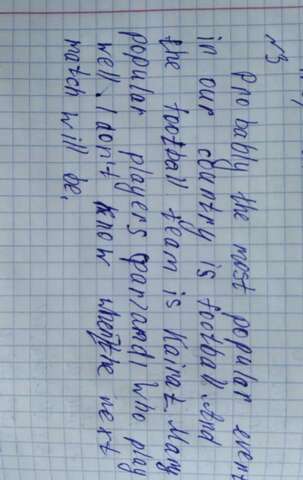 №3
Probably the most popular event
in our country is football. And
the football team is Kairat. Many
popular players and who play
well. I don't know when the next
match will be.